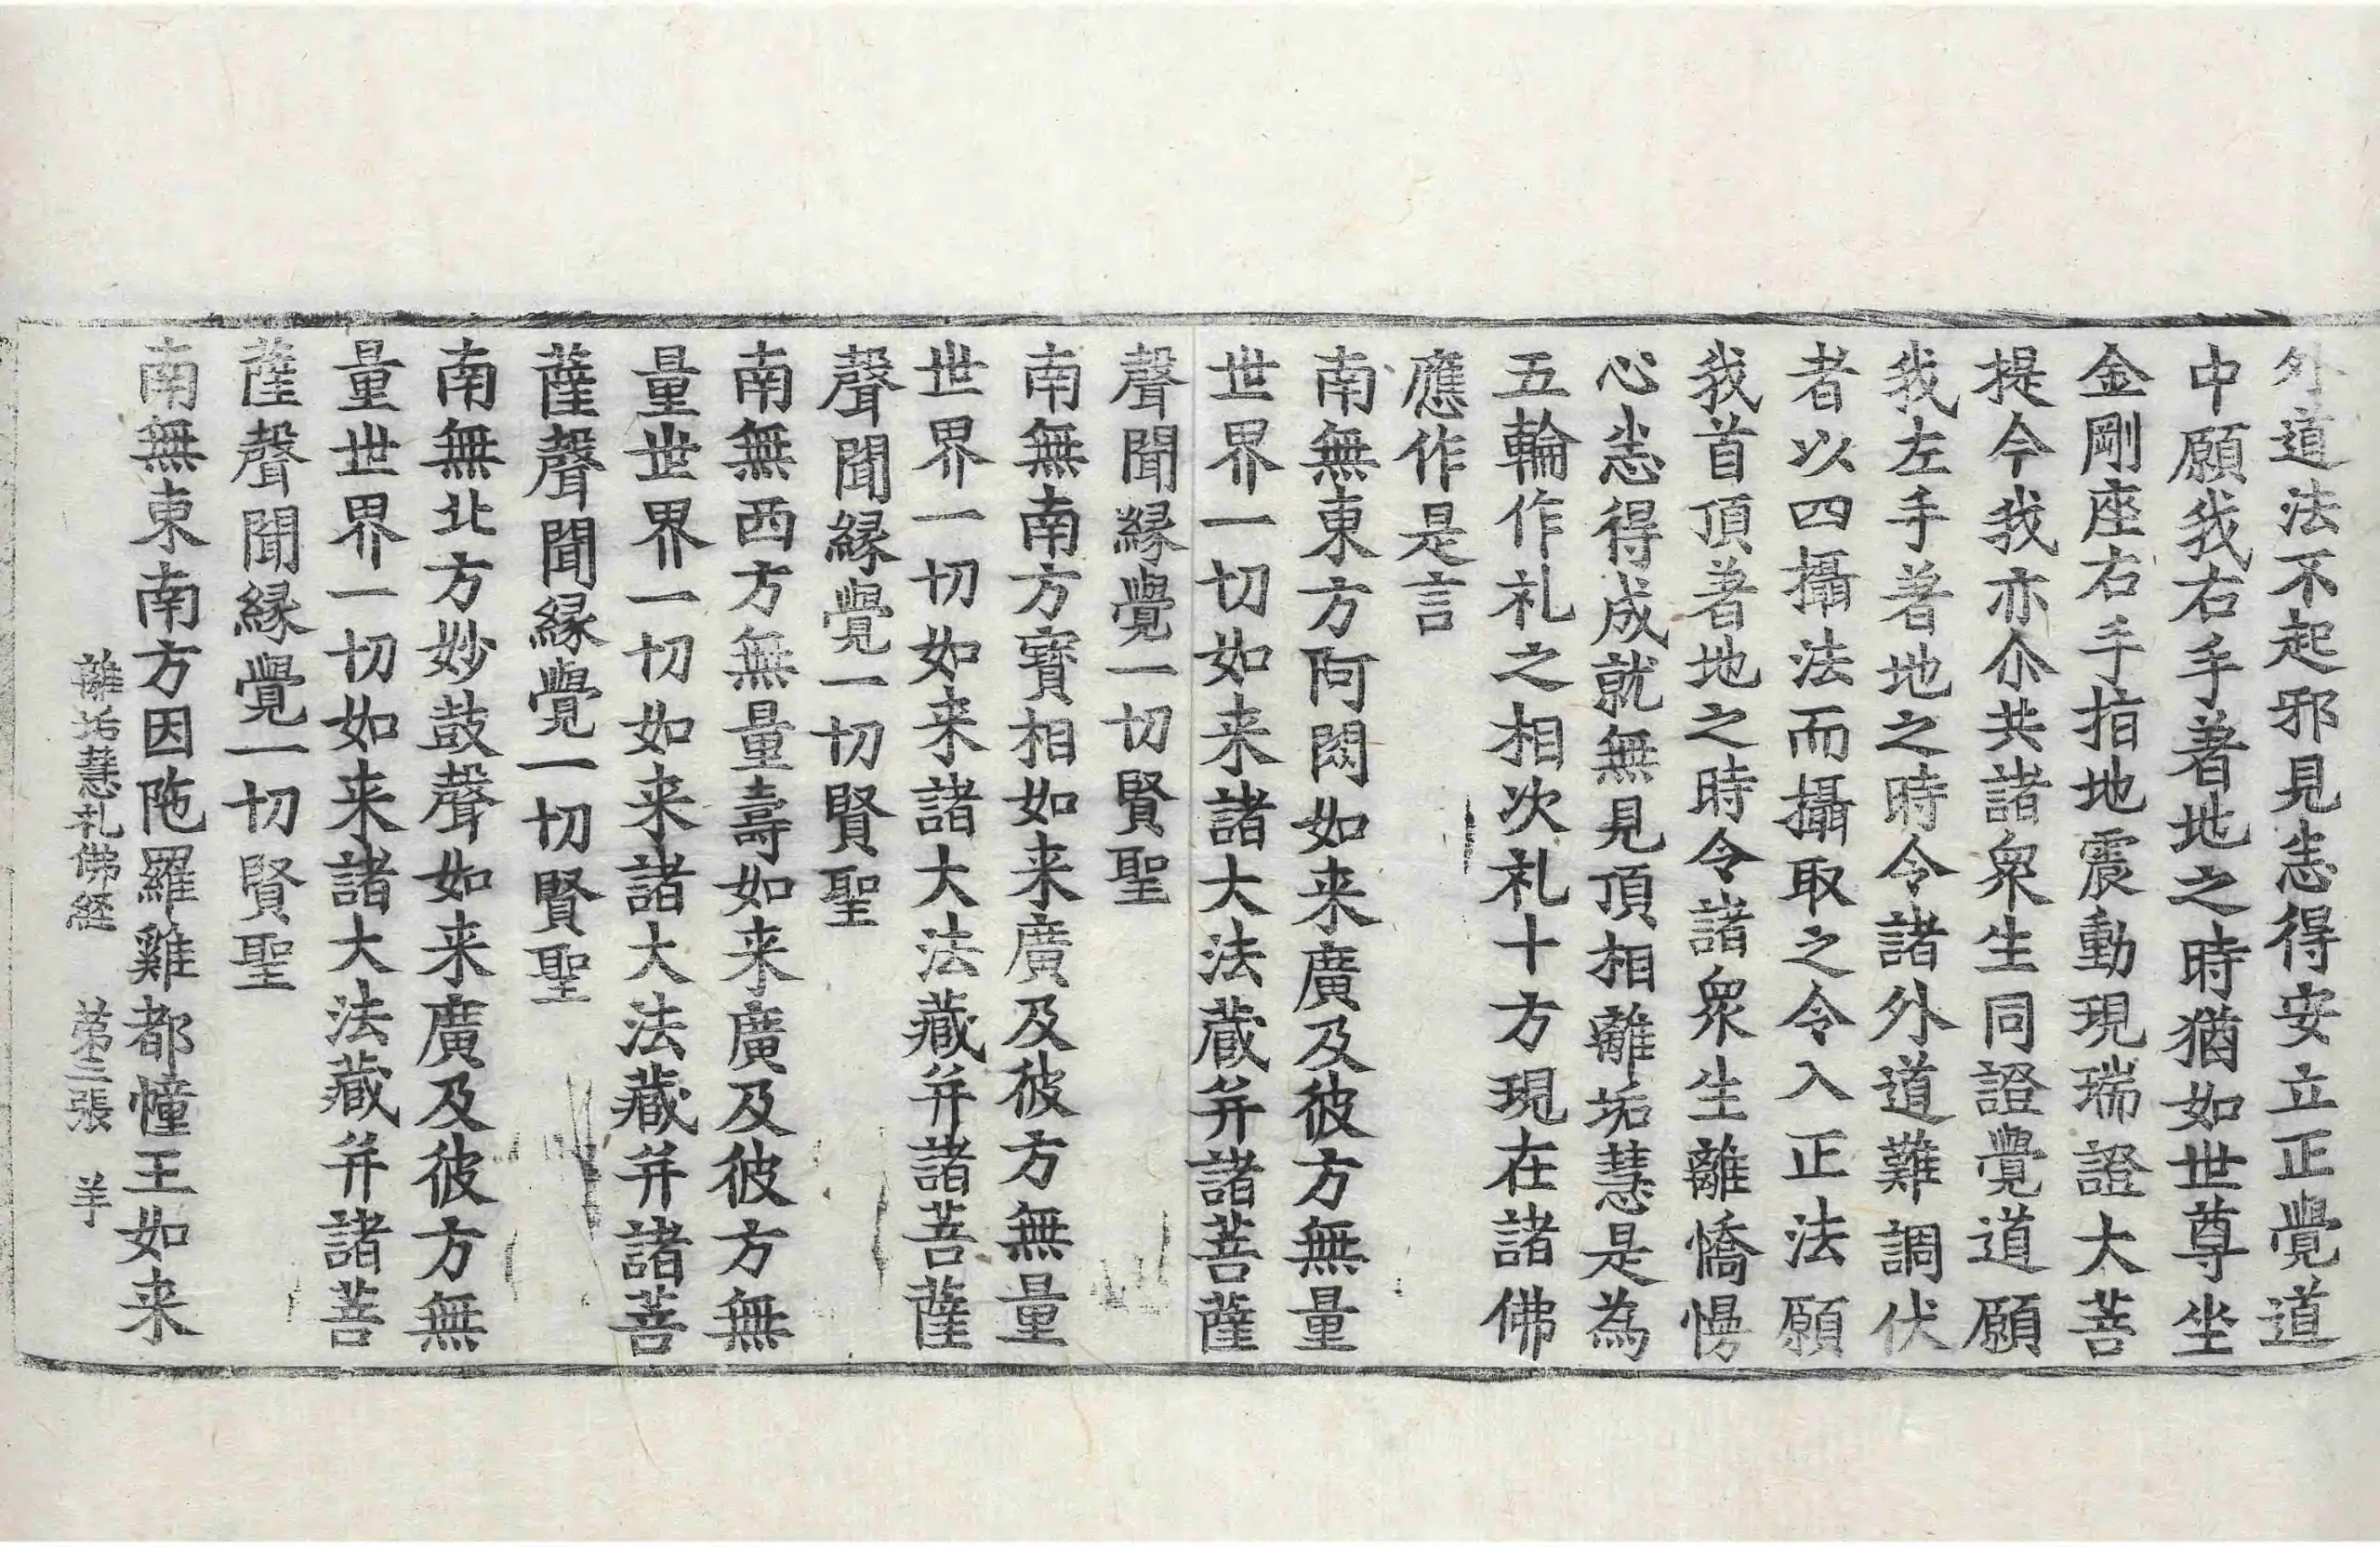 外道法不起邪見悉得安立正覺道
中願我右手著地之時猶如世尊坐
金剛座右手指地震動現瑞證大菩
提今我亦尒共諸衆生同證覺道願
我左手著地之時令諸外道難調伏
者以四攝法而攝取之令入正法願
我首頂著地之時令諸衆生離憍慢
心悉得成就無見頂相離垢慧是為
五輪作礼之相次礼十方現在諸佛
應作是言
南無東方阿閦如来廣及彼方無量
世界一切如来諸大法藏并諸菩薩
聲聞縁覺一切賢聖
南無南方寶相如来廣及彼方無量
世界一切如来諸大法藏并諸菩薩
聲聞縁覺一切賢聖
南無西方無量壽如来廣及彼方無
量世界一切如来諸大法藏并諸菩
薩聲聞縁覺一切賢聖
南無北方妙鼓聲如来廣及彼方無
量世界一切如来諸大法藏并諸菩
薩聲聞縁覺一切賢聖
南無東南方因陁羅雞都幢王如来
離垢慧礼佛經 第三張 羊